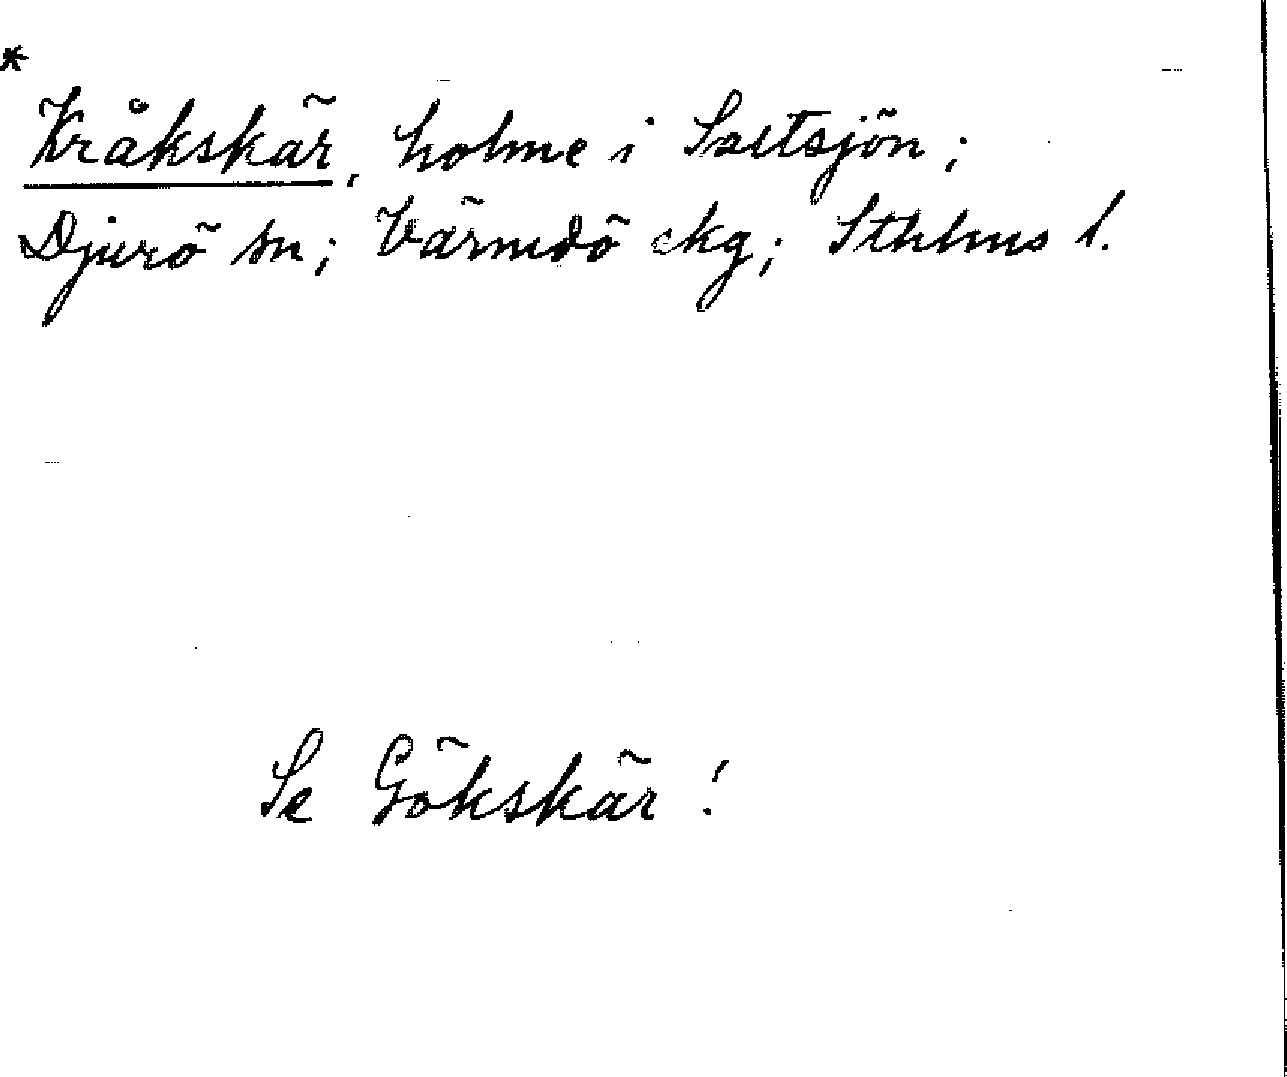 *
Kråkskär, holme i Saltsjön;
Djurö sn; Värmdö skg; Sthlms l.
Se Gökskär!